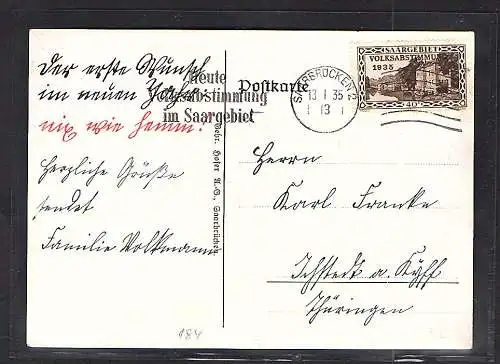 Der erste Wunsch
im neuen Jahre:
nix wie hemm!
Herzliche Grüße
sendet
Familie Volkmann
Heute
Volksabstimmung
im Saargebiet
Postkarte
SAARBRÜCKEN 2
13 1 35
13
SAARGEBIET
VOLKSABSTIMMUNG
1935
40
Gebr. Hofer A.G., Saarbrücken
Herrn
Karl Franke
Ichstedt a. Kyff
Thüringen
184